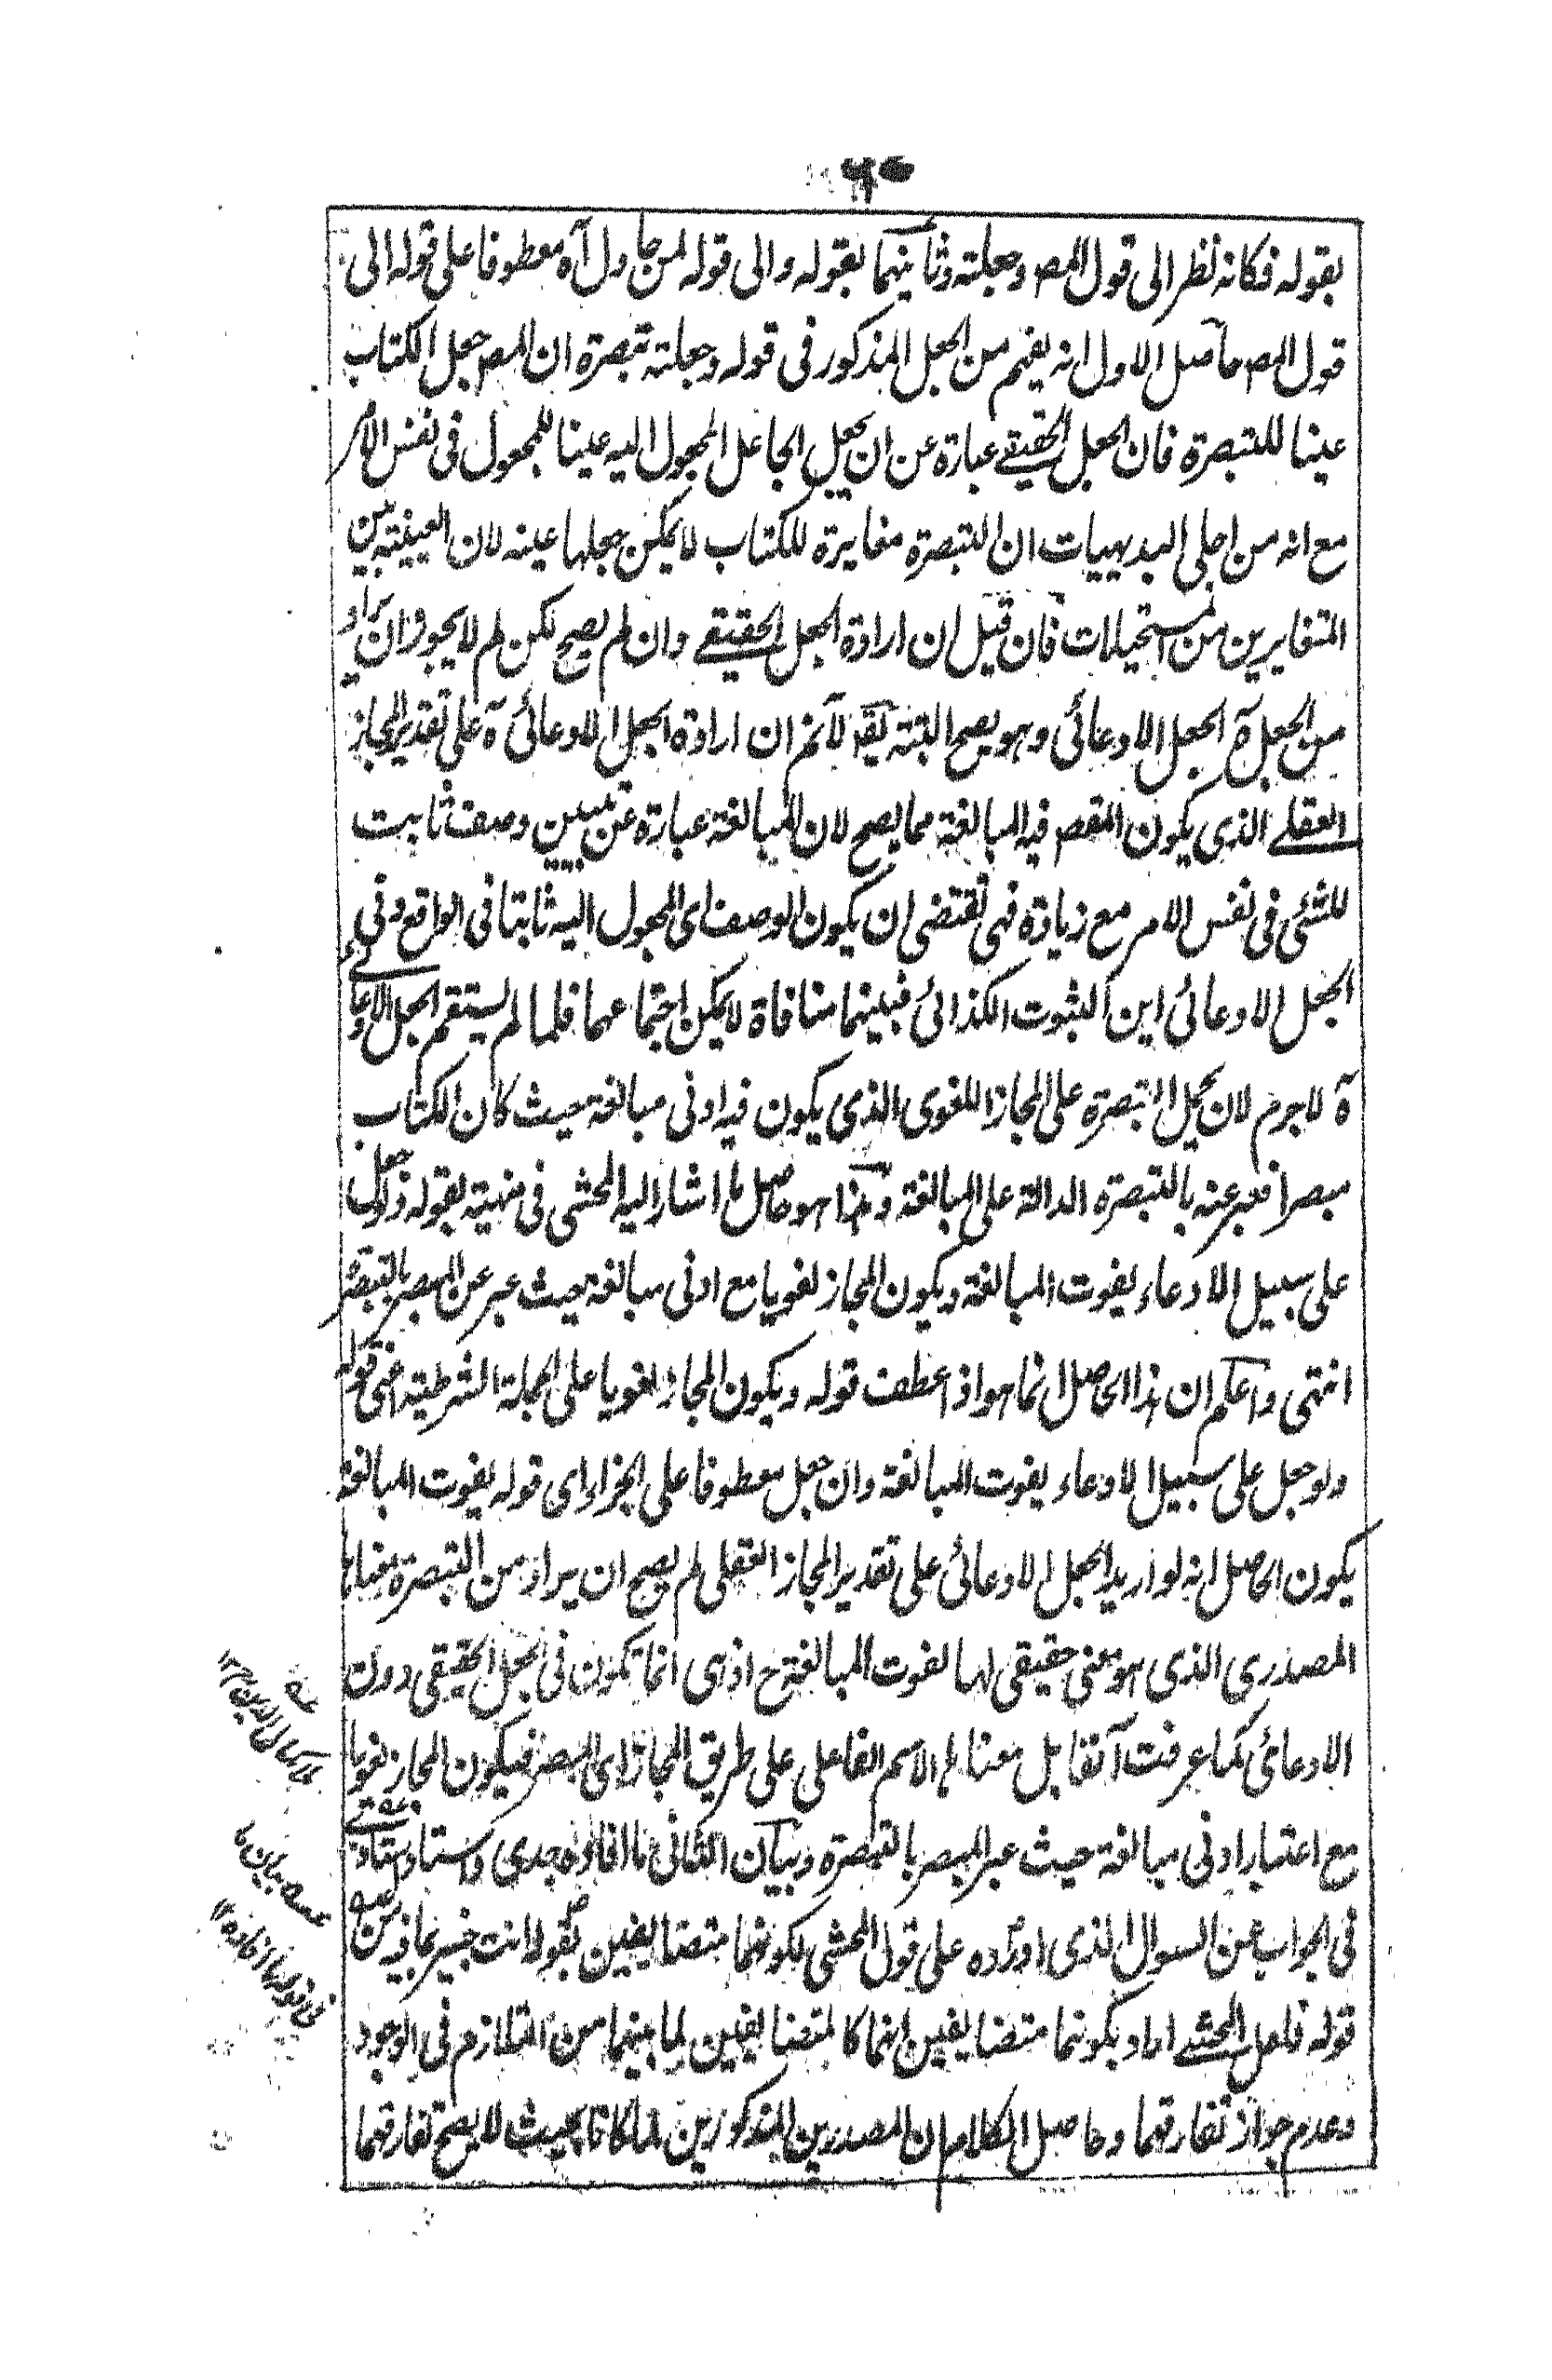 بقوله فكانه نظر الى قول المص وجعلته وثانيهما بقوله والى قوله لمن حاول آه معطوفا على قوله الى
قول المص حاصل الاول انه يفهم من الجعل المذكور فى قوله وجعلته تبصرة ان المص جعل الكتاب
عينا للتبصرة فان الجعل الحقيقے عبارة عن ان يجعل الجاعل المجعول اليه عينا للمجعول فى نفس الامر
مع انه من اجلى البديهيات ان التبصرة مغايرة للكتاب لا يمكن جعلها عينه لان العينية بين
المتغايرين من المستحيلات فان قيل ان ارادة الجعل الحقيقے وان لم يصح لكن لم لا يجوز ان يراد
من الجعل آه الجعل الادعائى وهو يصح البتة يقر لانم ان ارادة الجعل الادعائى آه على تقدير المجاز
العقلے الذى يكون المقص فيه المبالغة مما يصح لان المبالغة عبارة عن تبيين وصف ثابت
للشئى فى نفس الامر مع زيادة فهى تقتضى ان يكون الوصف اى المجعول اليه ثابتا فى الواقع وفى
الجعل الادعائى اين الثبوت الكذائى فبينهما منافاة لا يمكن اجتماعهما فلما لم يستقم الجعل الادعائے
آه لاجرم لان يحمل التبصرة على المجاز اللغوى الذى يكون فيه ادنى مبالغة حيث كان الكتاب
مبصرا فعبر عنه بالتبصرة الدالة على المبالغة وهذا هو حاصل ما اشار اليه المحشى فى منهيته بقوله ولو جعل
على سبيل الادعاء يفوت المبالغة ويكون المجاز لغويا مع ادنى مبالغة حيث عبر عن المبصر بالتبصرة
انتهى واعلم ان هذا الحاصل انما هو اذا عطف قوله ويكون المجاز لغويا على الجملة الشرطية اعنى قوله
ولو جعل على سبيل الادعاء يفوت المبالغة وان جعل معطوفا على الجزاء اى قوله يفوت المبالغة
يكون الحاصل انه لو اريد الجعل الادعائى على تقدير المجاز العقلى لم يصح ان يراد من التبصرة معناها
المصدرى الذى هو معنى حقيقى لها لفوت المبالغة ح اذ هى انما تكون فى الجعل الحقيقى دون
الادعائى كما عرفت آنفا بل معناها الاسم الفاعلى على طريق المجاز اى المبصر فيكون المجاز لغويا
مع اعتبار ادنى مبالغة حيث عبر المبصر بالتبصرة وبيان الثانى ما افاد جدى واستاد استادى
فى الجواب عن السوال الذى اورده على قول المحشى لكونهما متضايفين بقوله انت خبير بما فيه من
قوله فلعل المحشے اراد بكونهما متضايفين انهما كالمتضايفين لما بينهما من التلازم فى الوجود
وعدم جواز تفارقهما وحاصل الكلام ان المصدرين المذكورين لما كانا بحيث لا يصح تفارقهما